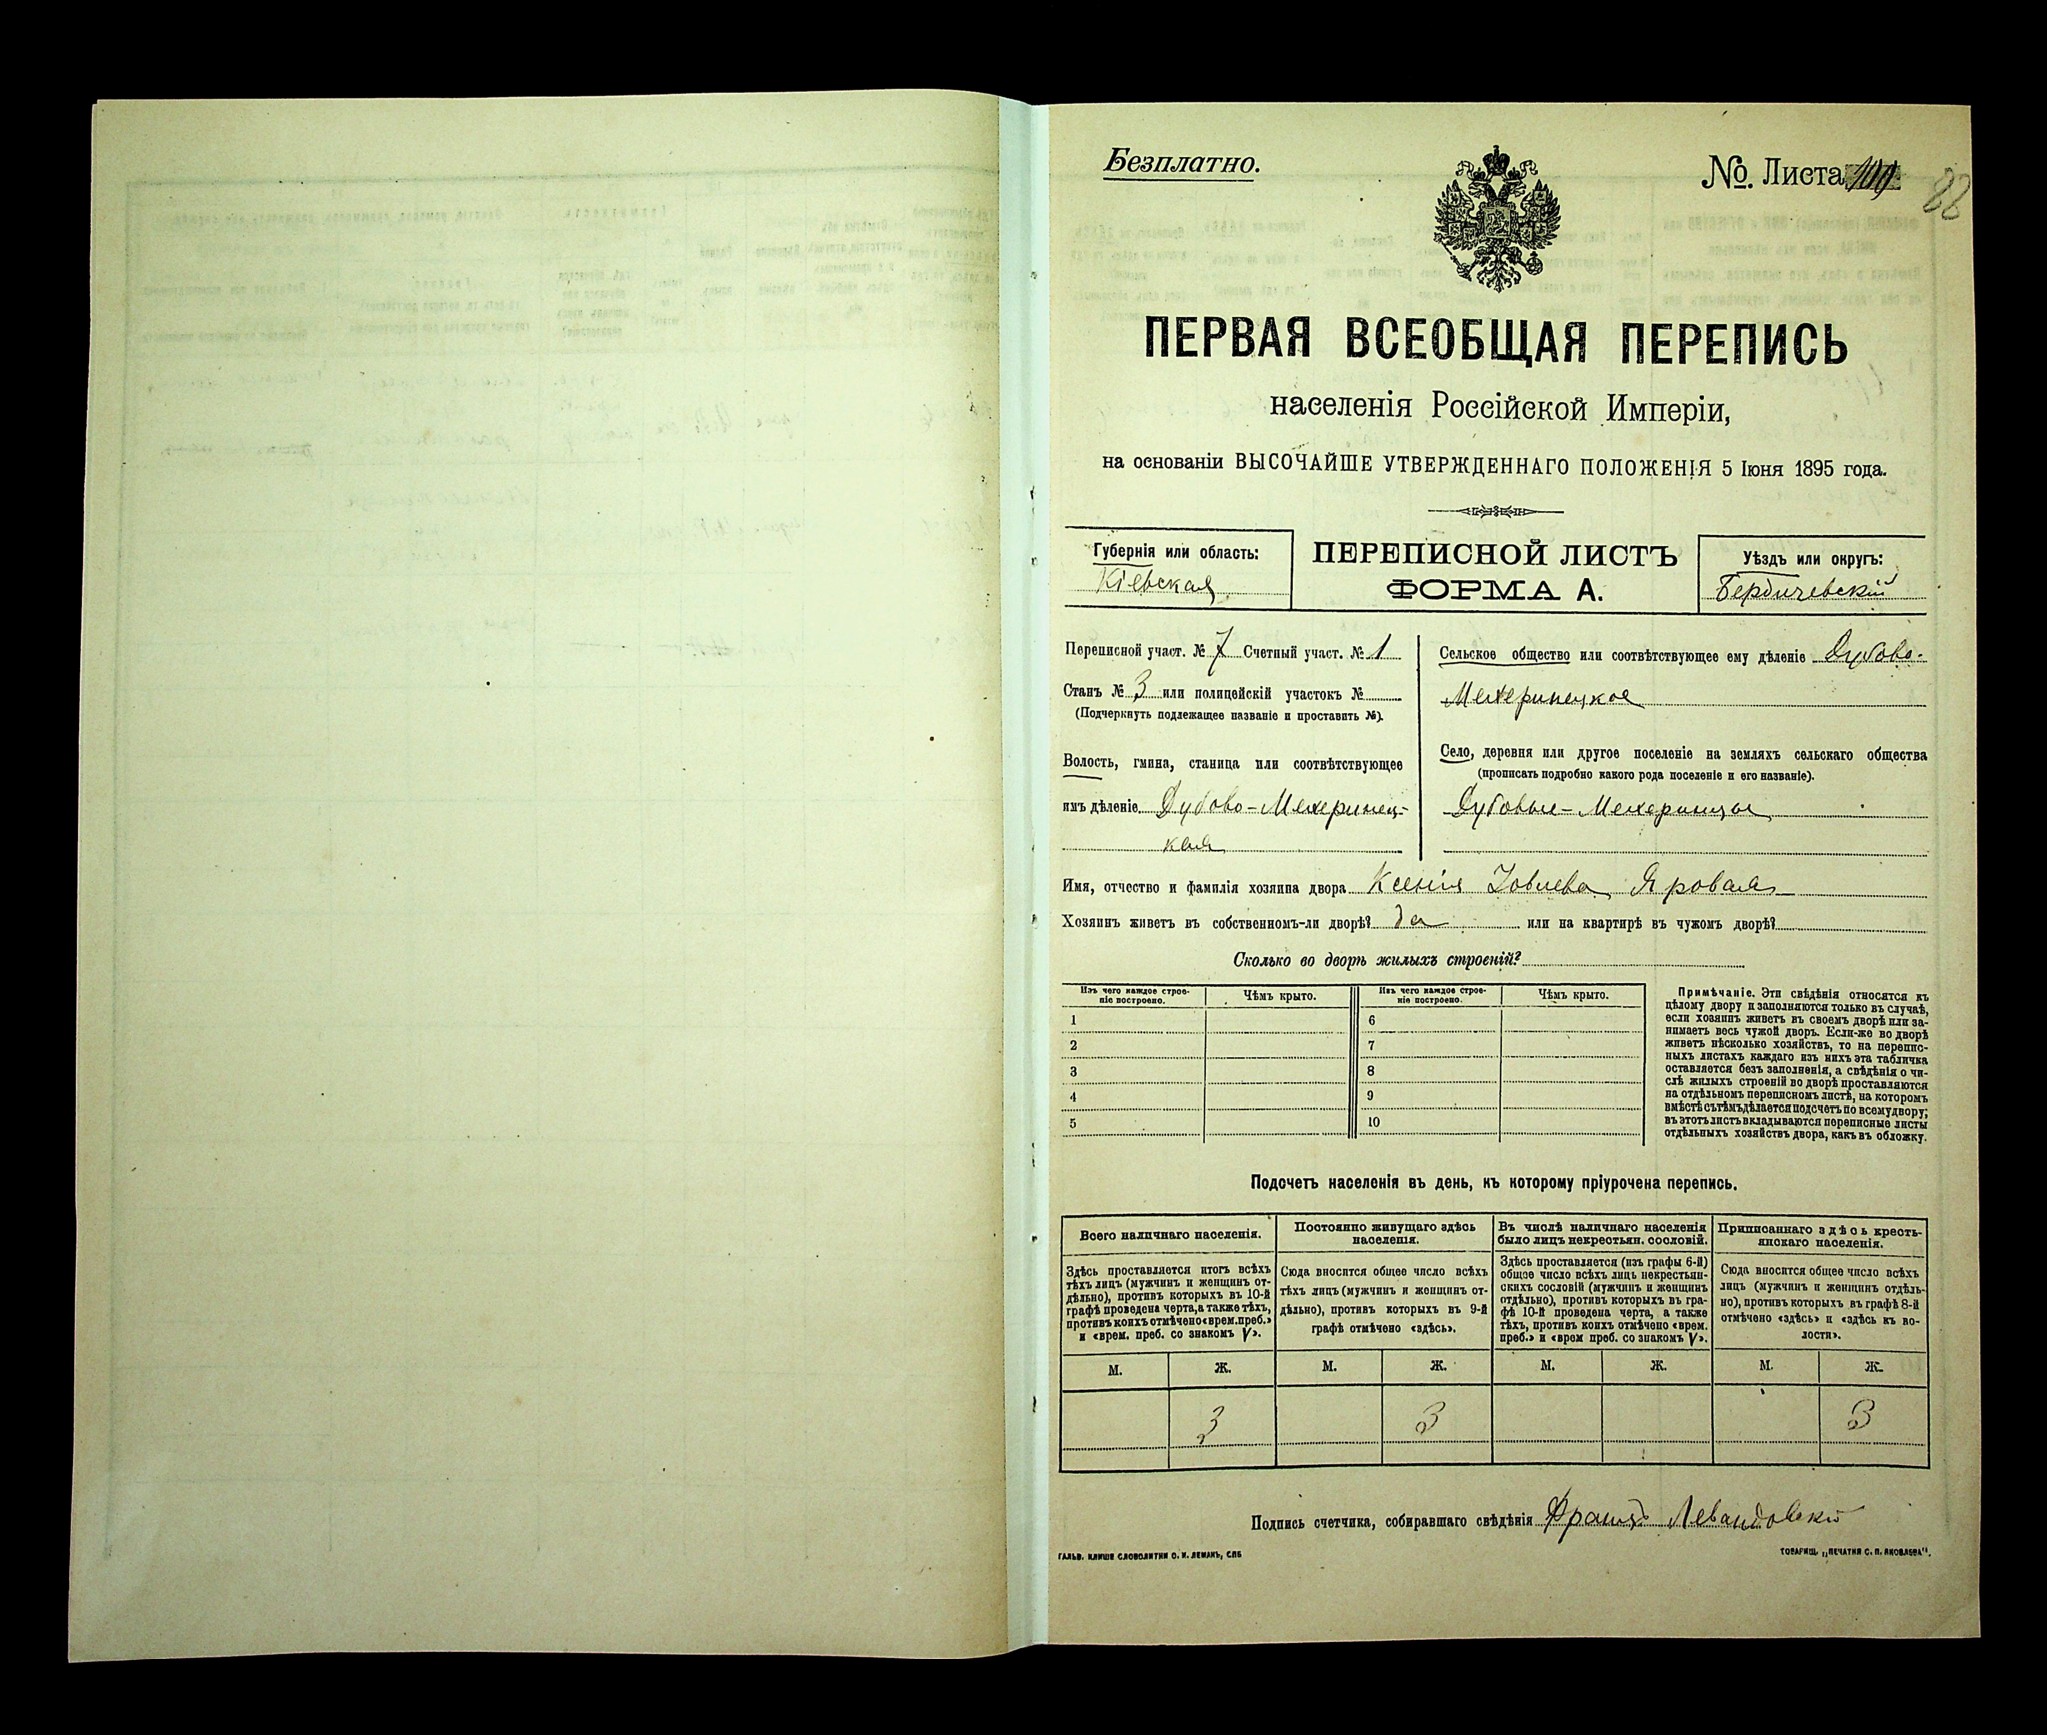 Безплатно.
№. Листа 109
88
ПЕРВАЯ ВСЕОБЩАЯ ПЕРЕПИСЬ
населенія Россійской Имперіи,
на основаніи ВЫСОЧАЙШЕ УТВЕРЖДЕННАГО ПОЛОЖЕНІЯ 5 Іюня 1895 года.
Губернія или область:
Кіевская
ПЕРЕПИСНОЙ ЛИСТЪ
ФОРМА А.
Уѣздъ или округъ:
Бердичевскій
Переписной участ. № 7 Счетный участ. № 1
Станъ № 3 или полицейскій участокъ №
(Подчеркнуть подлежащее названіе и проставить №).
Волость, гмина, станица или соотвѣтствующее
имъ дѣленіе Дубово-Мехеринец-
кая
Сельское общество или соотвѣтствующее ему дѣленіе Дубово-
Мехеринецкое
Село, деревня или другое поселеніе на земляхъ сельскаго общества
(прописать подробно какого рода поселеніе и его названіе).
Дубовые-Мехеринцы
Имя, отчество и фамилія хозяина двора Ксенія Іовлева Яровая
Хозяинъ живетъ въ собственномъ-ли дворѣ? да или на квартирѣ въ чужомъ дворѣ?
Сколько во дворѣ жилыхъ строеній?
Изъ чего каждое строе-
ніе построено.
Чѣмъ крыто.
Изъ чего каждое строе-
ніе построено.
Чѣмъ крыто.
1 6
2 7
3 8
4 9
5 10
Примѣчаніе. Эти свѣдѣнія относятся къ
цѣлому двору и заполняются только въ случаѣ,
если хозяинъ живетъ въ своемъ дворѣ или за-
нимаетъ весь чужой дворъ. Если-же во дворѣ
живетъ нѣсколько хозяйствъ, то на перепис-
ныхъ листахъ каждаго изъ нихъ эта табличка
оставляется безъ заполненія, а свѣдѣнія о чи-
слѣ жилыхъ строеній во дворѣ проставляются
на отдѣльномъ переписномъ листѣ, на которомъ
вмѣстѣ съ тѣмъ дѣлается подсчетъ по всему двору;
въ этотъ листъ вкладываются переписные листы
отдѣльныхъ хозяйствъ двора, какъ въ обложку.
Подсчетъ населенія въ день, къ которому пріурочена перепись.
Всего наличнаго населенія.
Здѣсь проставляется итогъ всѣхъ
тѣхъ лицъ (мужчинъ и женщинъ от-
дѣльно), противъ которыхъ въ 10-й
графѣ проведена черта, а также тѣхъ,
противъ коихъ отмѣчено «врем. преб.»
и «врем. преб. со знакомъ V».
Постоянно живущаго здѣсь
населенія.
Сюда вносится общее число всѣхъ
тѣхъ лицъ (мужчинъ и женщинъ от-
дѣльно), противъ которыхъ въ 9-й
графѣ отмѣчено «здѣсь».
Въ числѣ наличнаго населенія
было лицъ некрестьян. сословій.
Здѣсь проставляется (изъ графы 6-й)
общее число всѣхъ лицъ некрестьян-
скихъ сословій (мужчинъ и женщинъ
отдѣльно), противъ которыхъ въ гра-
фѣ 10-й проведена черта, а также
тѣхъ, противъ коихъ отмѣчено «врем.
преб.» и «врем преб. со знакомъ V».
Приписаннаго здѣсь кресть-
янскаго населенія.
Сюда вносится общее число всѣхъ
лицъ (мужчинъ и женщинъ отдѣль-
но), противъ которыхъ въ графѣ 8-й
отмѣчено «здѣсь» и «здѣсь къ во-
лости».
М. Ж. М. Ж. М. Ж. М. Ж.
3 3 3
Подпись счетчика, собиравшаго свѣдѣнія Францъ Левандовскій
ГАЛЬВ. КЛИШЕ СЛОВОЛИТНИ О. И. ЛЕМАНЪ, СПБ
ТОВАРИЩ. „ПЕЧАТНЯ С. П. ЯКОВЛЕВА".